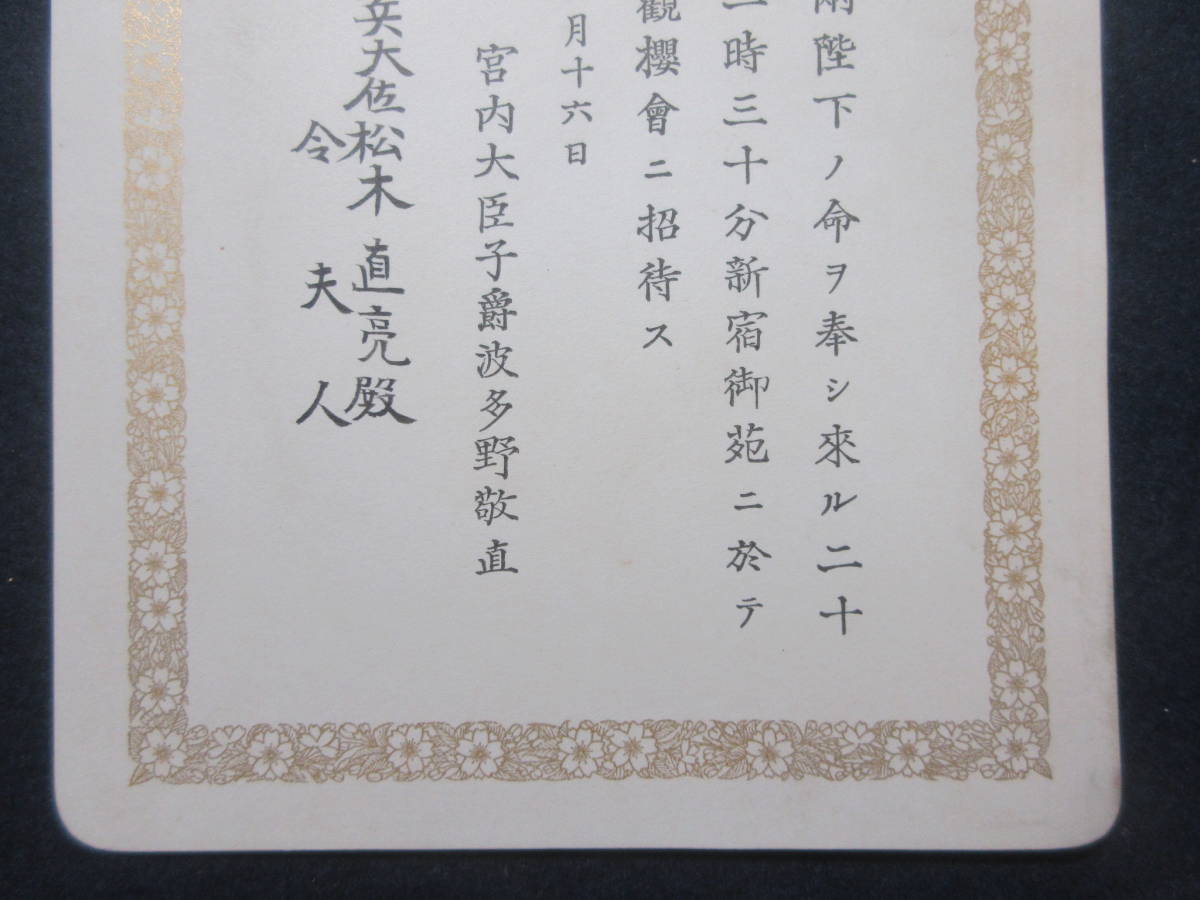 兩陛下ノ命ヲ奉シ來ル二十
時三十分新宿御苑ニ於テ
觀櫻會ニ招待ス
月十六日
宮内大臣子爵波多野敬直
兵大佐松木直亮殿
令夫人